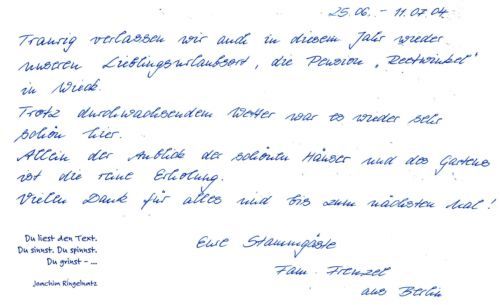 25.06. - 11.07.04
Traurig verlassen wir auch in diesem Jahr wieder
unseren Lieblingsurlaubsort, die Pension „Reetwinkel"
in Wieck.
Trotz durchwachsendem Wetter war es wieder sehr
schön hier.
Allein der Anblick der schönen Häuser und des Gartens
ist die reine Erholung.
Vielen Dank für alles und bis zum nächsten Mal!
Eure Stammgäste
Fam. Frenzel
aus Berlin
Du liest den Text.
Du sinnst. Du spinnst.
Du grinst - ...
Joachim Ringelnatz